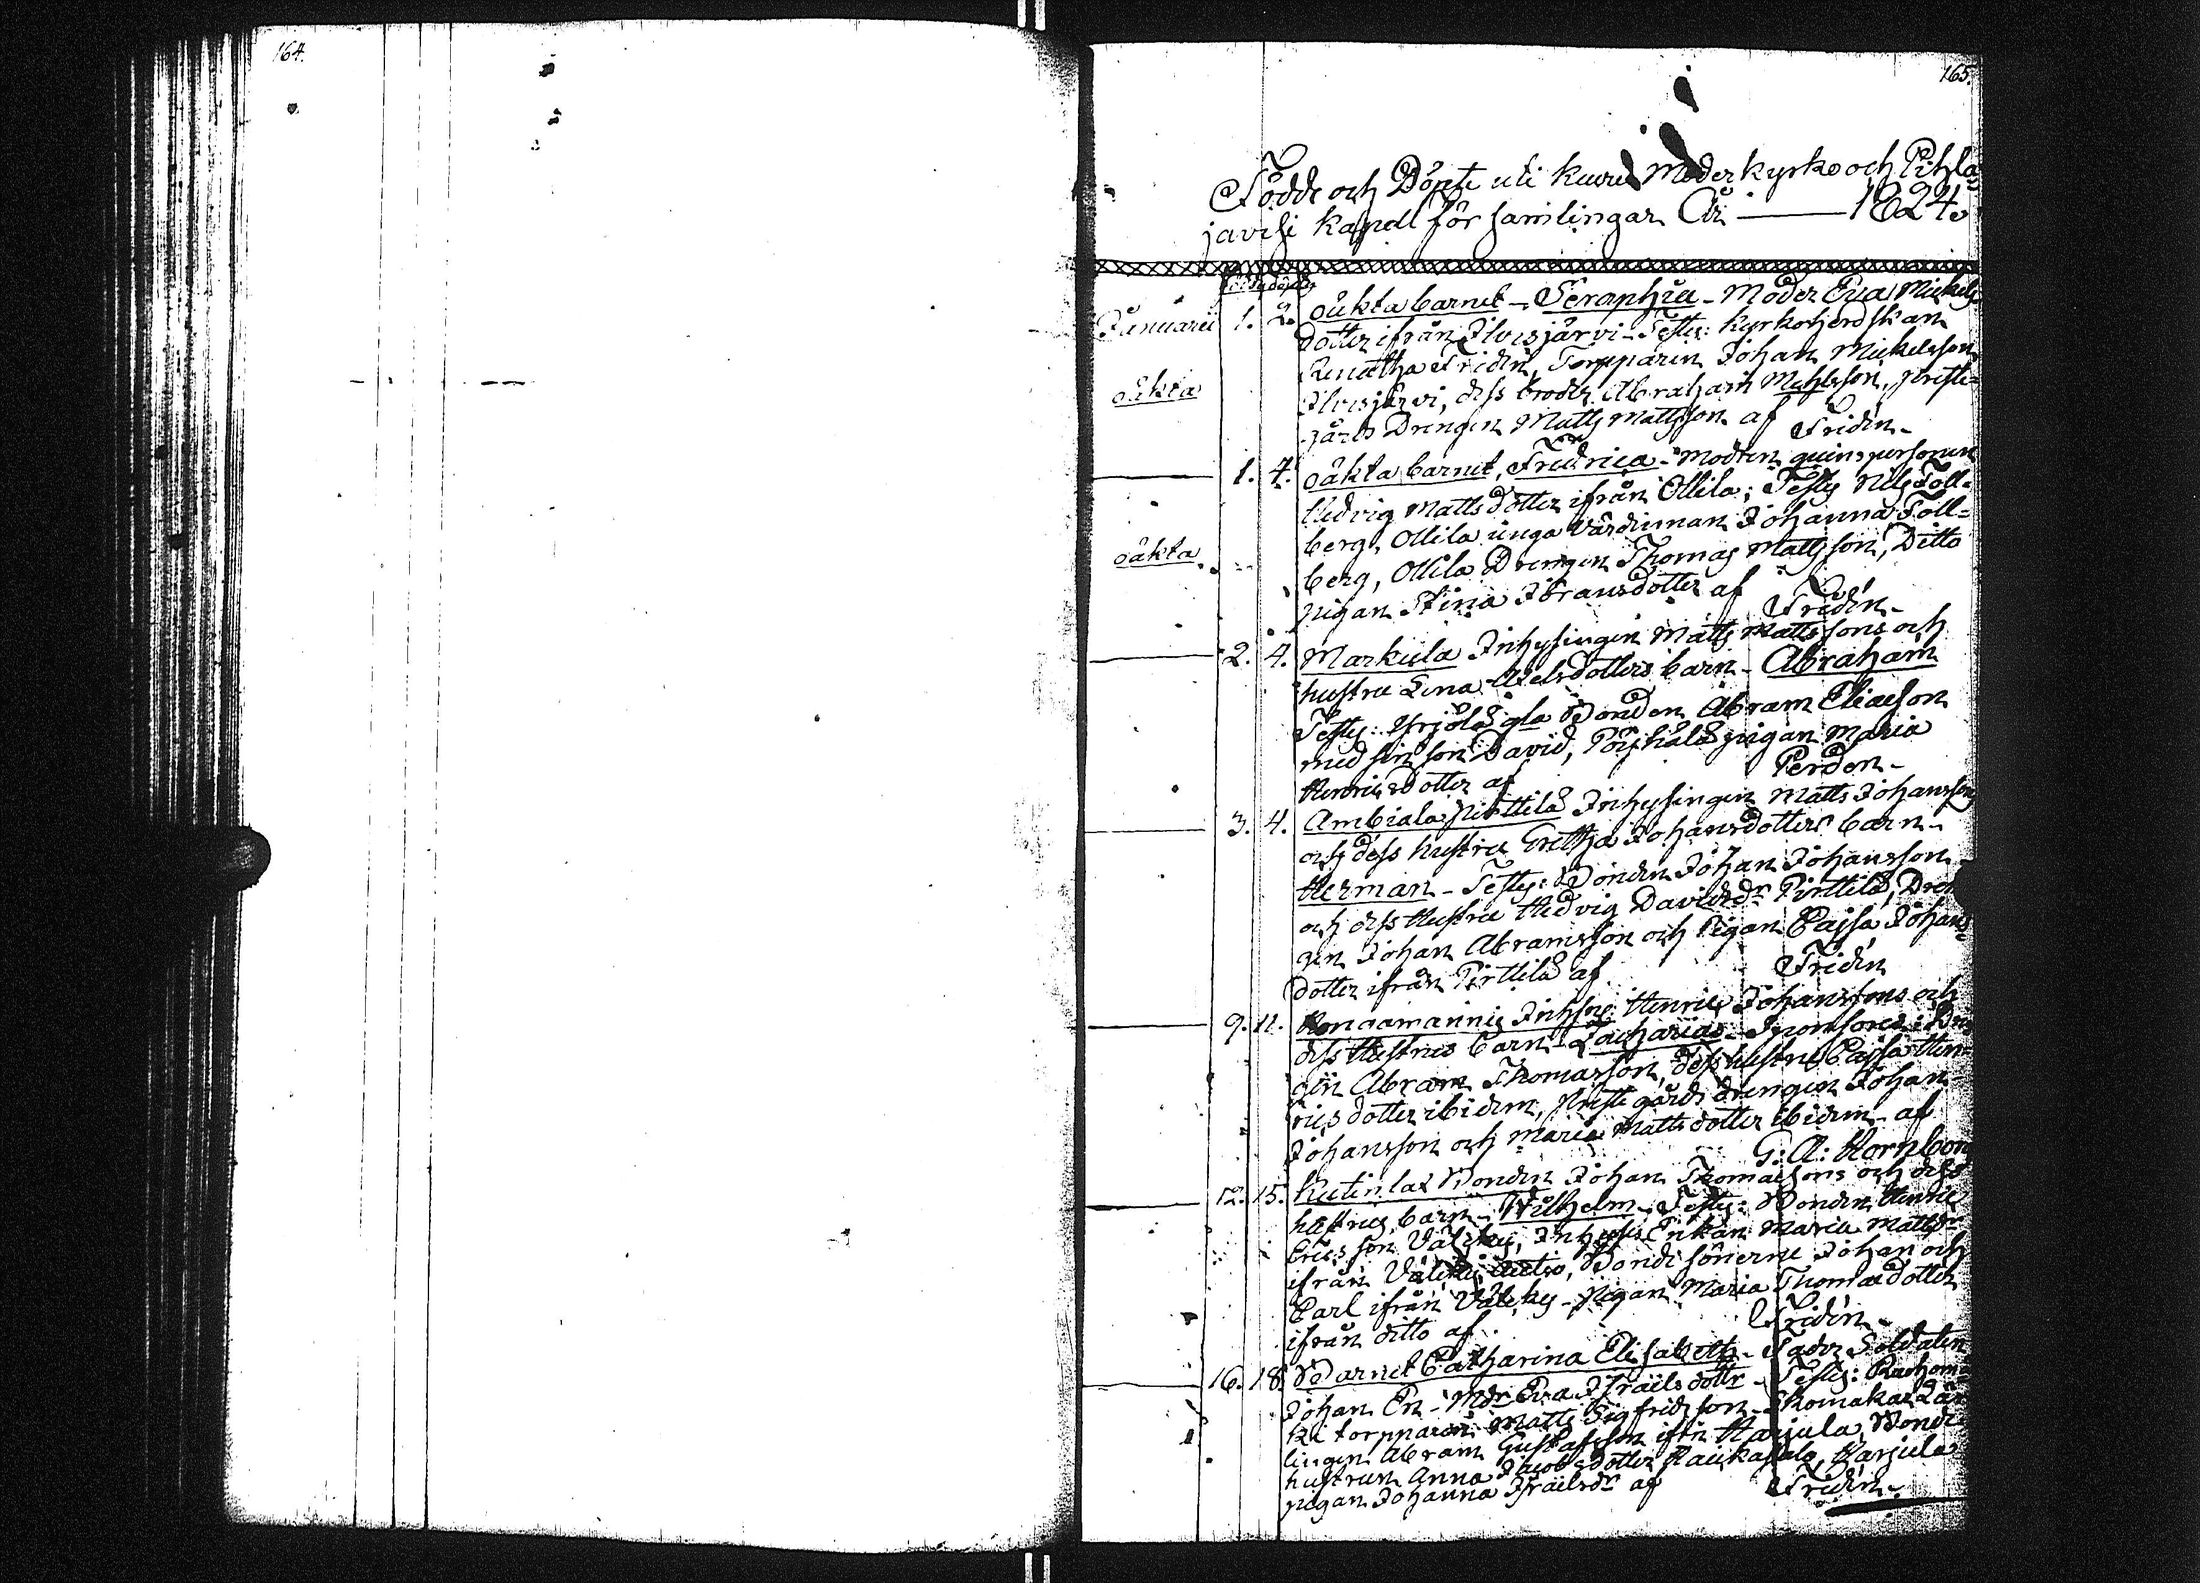 164.
165.
Födde och Döpte uti Kuru Moder kyrko och Pihla-
javesi Kapell för samlingar År — 1824.
Januarii 1. 2. oäkta barnet - Seraphia - Moder Eva Mickels
dotter ifrån Ilvesjärvi - Testes: kyrkoherdskan
Renatha Fridén, Torpparen Johan Mickelsson
oäkta
Ilvesjärvi, dess broder Abraham Michelsson, preste-
gårds Drengen Matts Mattsson af Fridén -
1. 4. oäkta barnet, Fredrica - modren qvinspersonen
Hedvig Mattsdotter ifrån Ollila; Testes Nils Toll-
berg, Ollila unga Värdinnan Johanna Toll-
oäkta.
berg, Ollila Drengen Thomas Mattsson, Ditto
pigan Stina Jöransdotter af Fridén -
2. 4. Markula Inhysingen Matts Mattssons och
hustru Lena Axelsdotters barn - Abraham
Testes: Yrjölä gla Bonden Abram Eliaeson
med sin son David, Pöyhälä pigan Maria
Henricsdotter af Perden -
3. 4. Ambiala Pirttilä Inhysingen Matts Johansson
och dess hustru Gretha Johansdotters barn -
Herman - Testes: Bonden Johan Johansson
och dess Hustru Hedvig Davidsdr Pirttilä, Dren
gen Johan Abramsson och Pigan Cajsa Johans-
dotter ifrån Pirttilä af Fridén
9. 11. Inhses Henric Johanssons och
dess Hustrus barn - Zacharias -
gen Abram Thomasson, dess hustru Cajsa Hen-
ricsdotter ibidem, Prestegårds drengen Johan
Johansson och Maria Mattsdotter ibidem - af
G: A: Hornborg
12. 15. Keitinlax Bonden Johan Thomaessons och dess
hustrus barn - Wilhelm - Testes: Bonden Henric
Ericsson Väliky, Inhyses Enkan Maria Mattsdr
ifrån Väliky, Bonde sönerne Johan och
Carl ifrån Väliky - pigan Maria Thomaedotter
ifrån ditto af Fridén -
16. 18. Barnet Catharina Elisabeth - Fader Soldaten
Johan En - Mdr Eva Israelsdottr - Testes:
torpparen Matts Sigfridsson - Skomakar Lär
lingen Abram Gustafsson ifrn Harjula, Bonde
hustrun Anna Jacobsdotter Haukapalo, Harjula
pigan Johanna Israelsdr af Fridén -